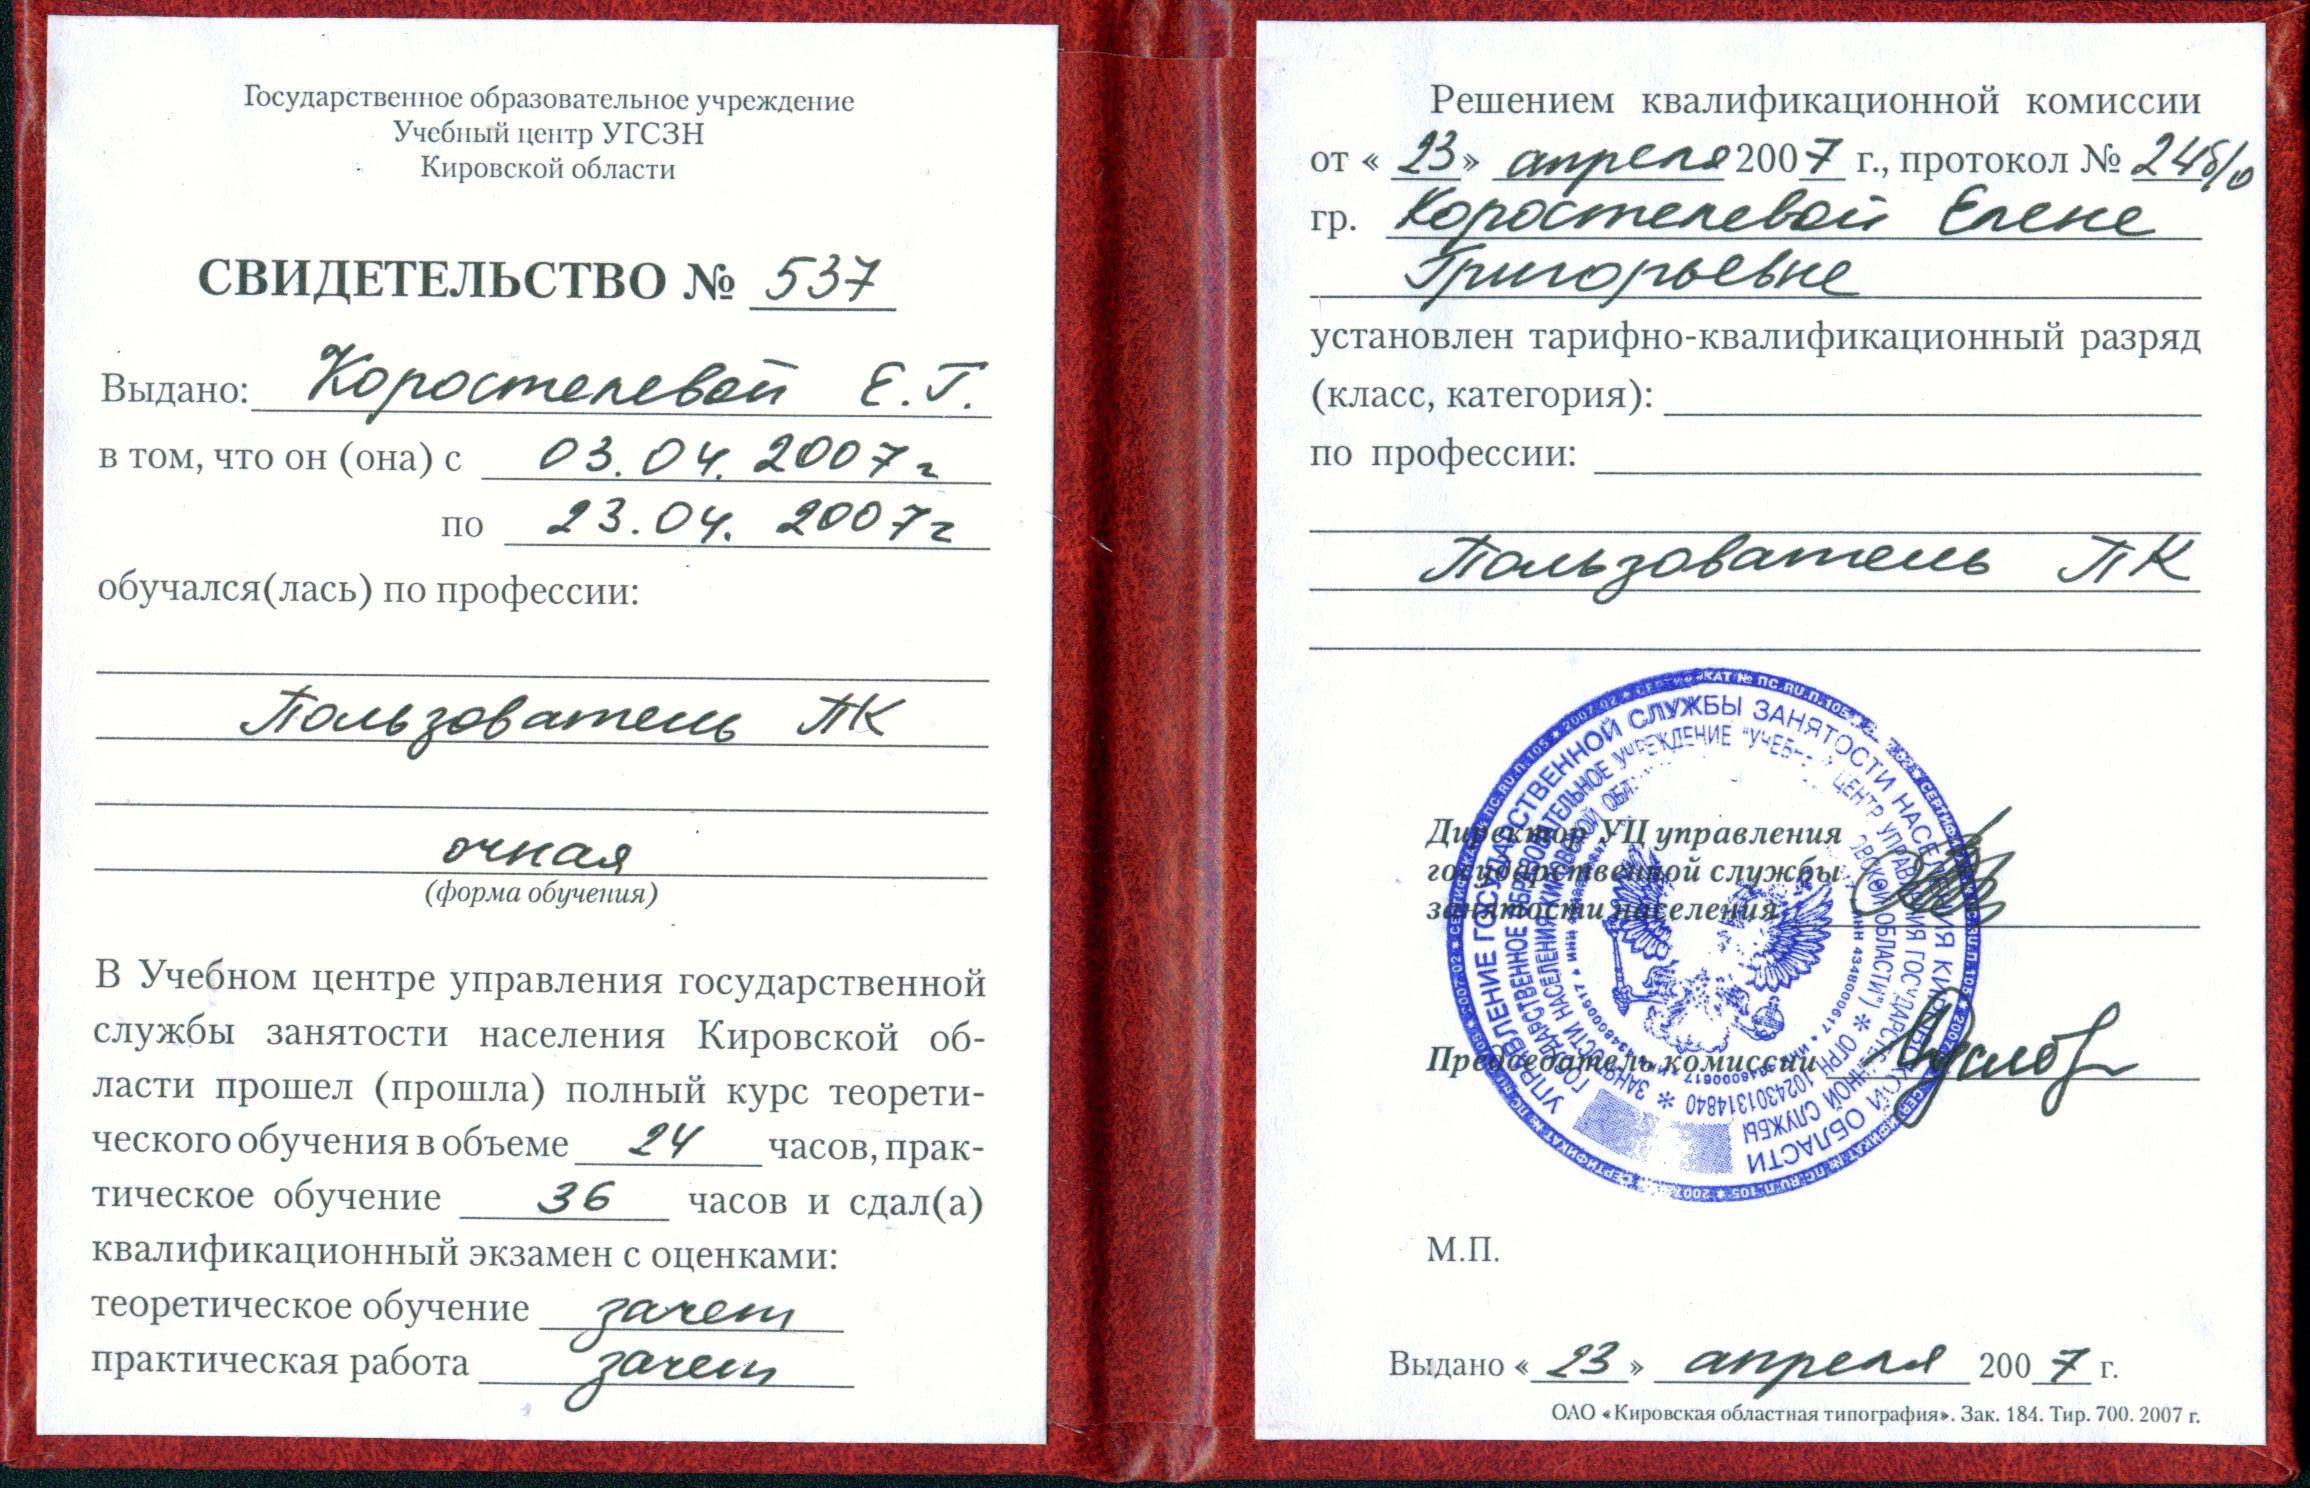 Государственное образовательное учреждение
Учебный центр УГСЗН
Кировской области
СВИДЕТЕЛЬСТВО № 537
Выдано: Коростелевой Е.Г.
в том, что он (она) с 03.04.2007г
по 23.04.2007г
обучался(лась) по профессии:
Пользователь ПК
очная
(форма обучения)
В Учебном центре управления государственной
службы занятости населения Кировской об-
ласти прошел (прошла) полный курс теорети-
ческого обучения в объеме 24 часов, прак-
тическое обучение 36 часов и сдал(а)
квалификационный экзамен с оценками:
теоретическое обучение зачет
практическая работа зачет
Решением квалификационной комиссии
от «23» апреля 2007 г., протокол № 24б/о
гр. Коростелевой Елене
Григорьевне
установлен тарифно-квалификационный разряд
(класс, категория):
по профессии:
Пользователь ПК
Директор УЦ управления
государственной службы
занятости населения
Председатель комиссии
УПРАВЛЕНИЕ ГОСУДАРСТВЕННОЙ СЛУЖБЫ ЗАНЯТОСТИ НАСЕЛЕНИЯ КИРОВСКОЙ ОБЛАСТИ
ОГРН 1024301314840
М.П.
Выдано «23» апреля 2007 г.
ОАО «Кировская областная типография». Зак. 184. Тир. 700. 2007 г.